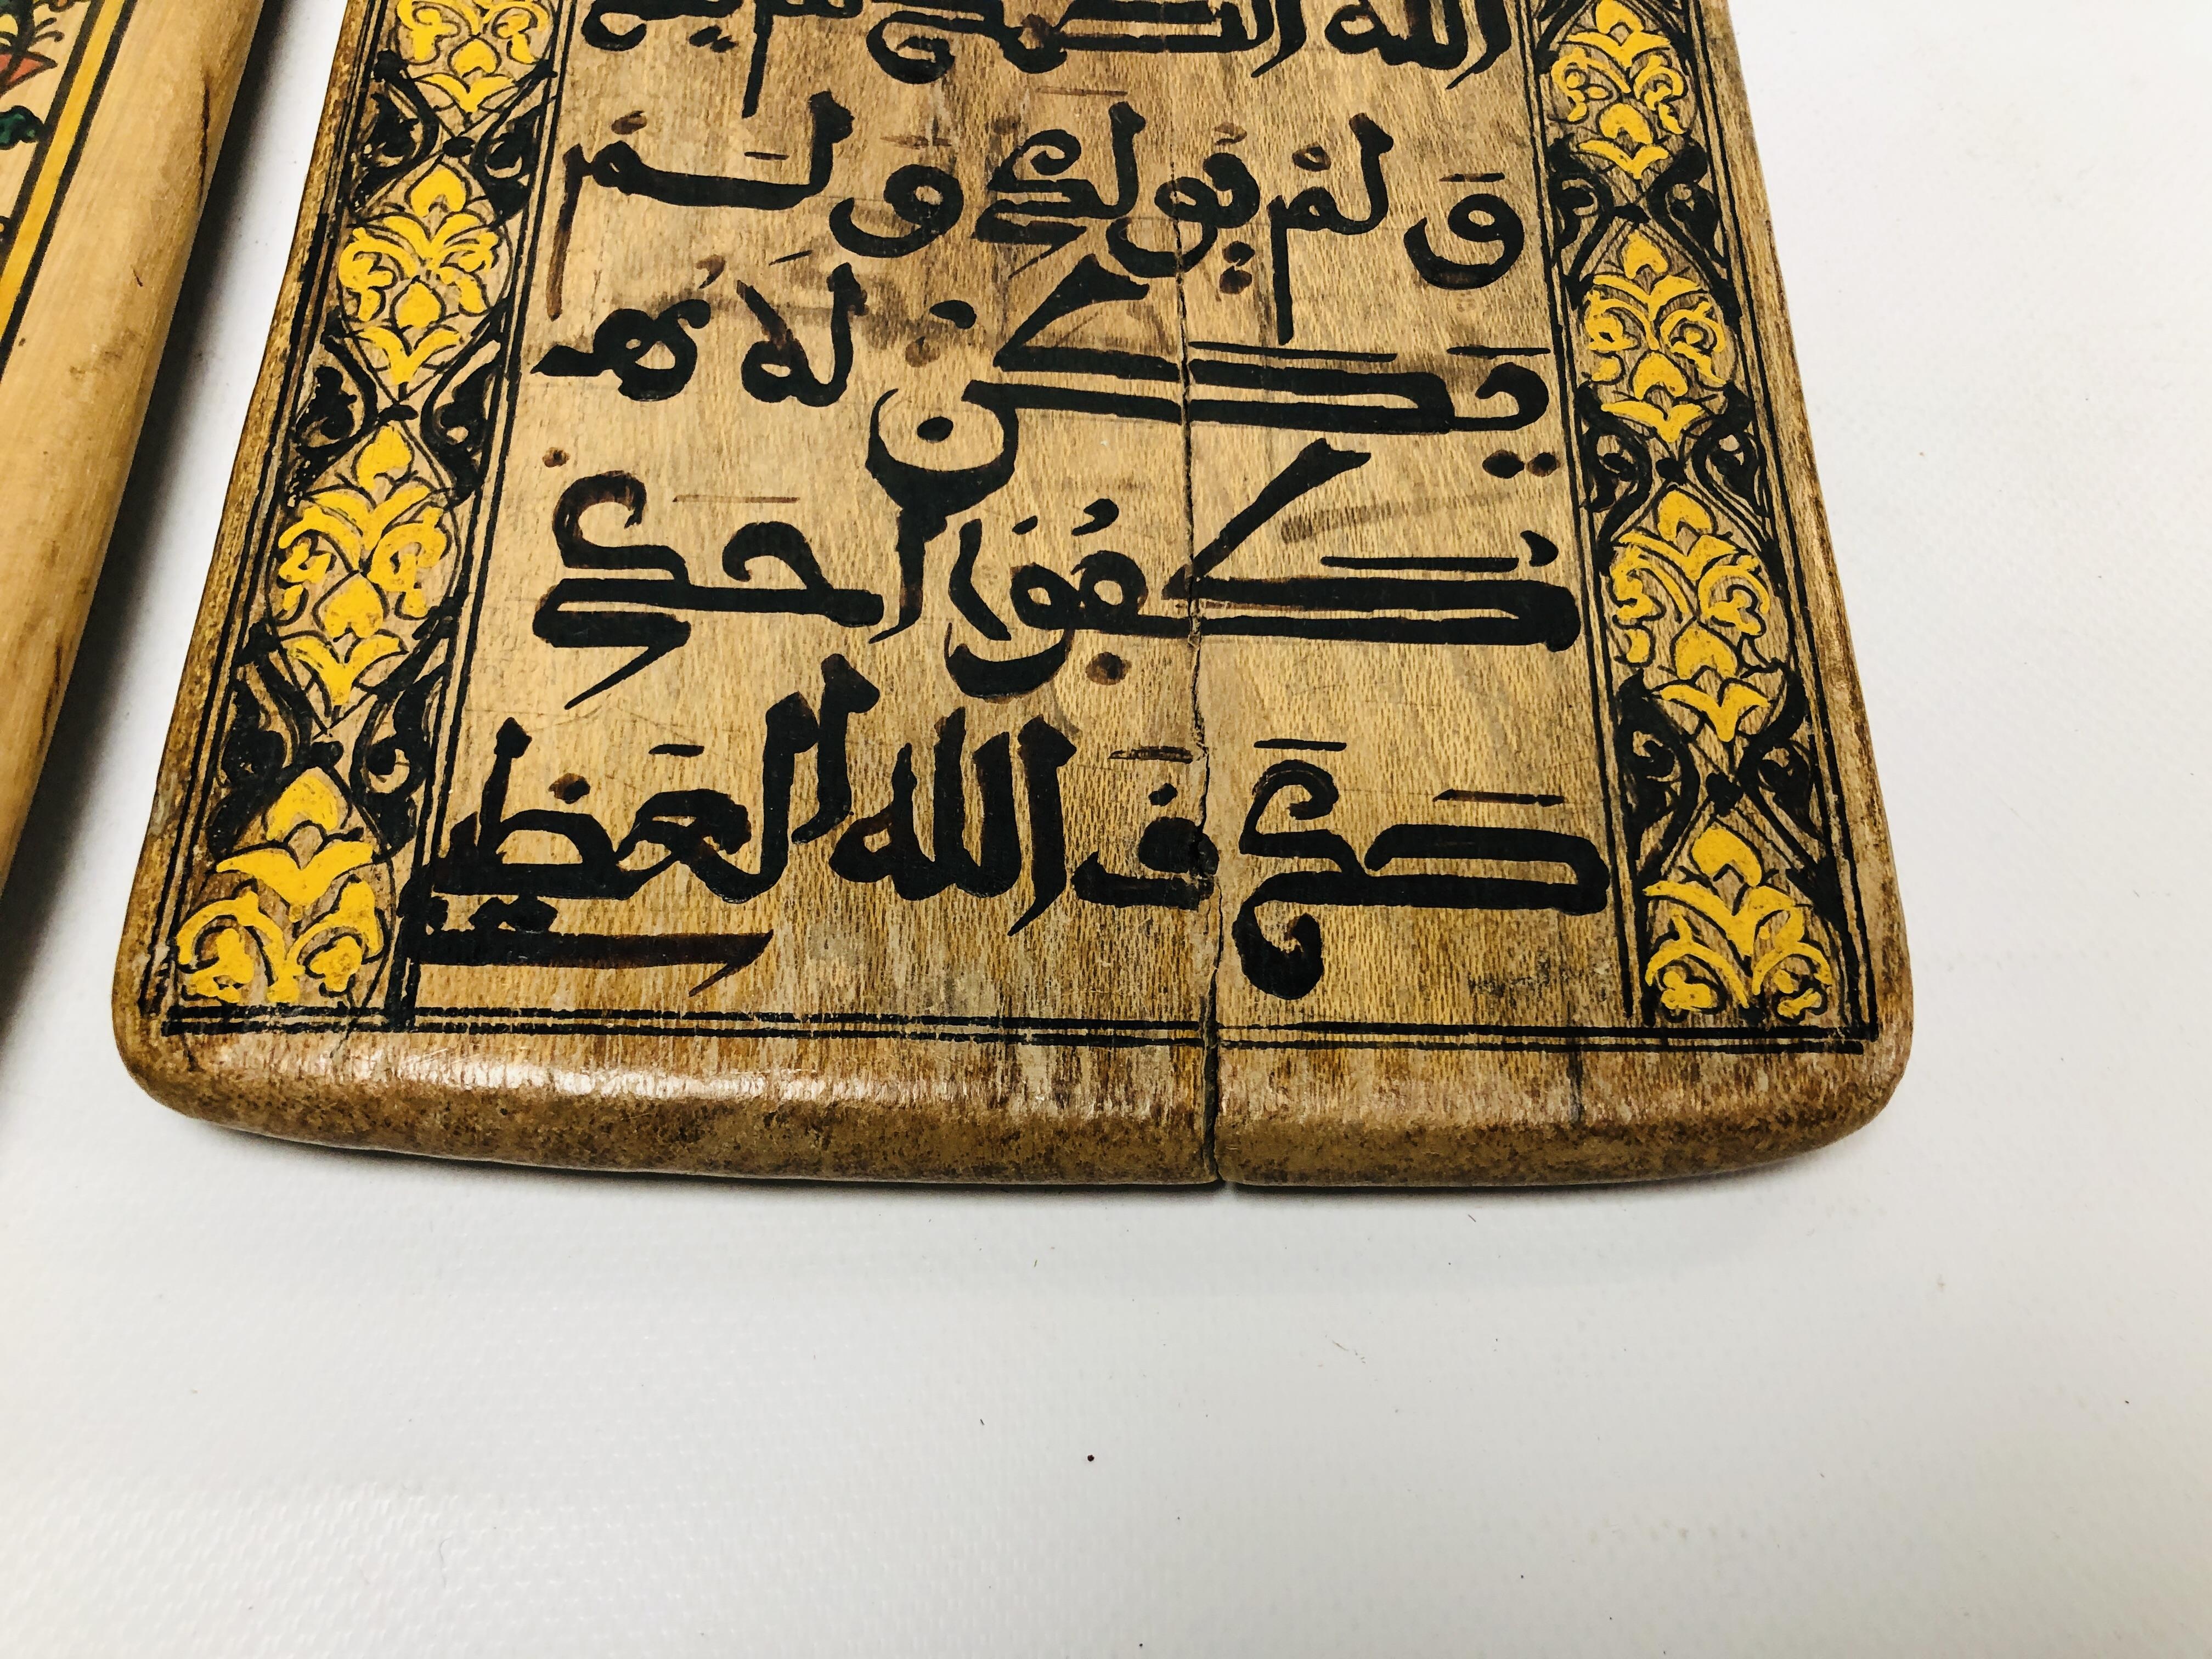 الله الصمد لم يلد
و لم يولد و لم
يكن له
كفوا احد
صدق الله العظيم